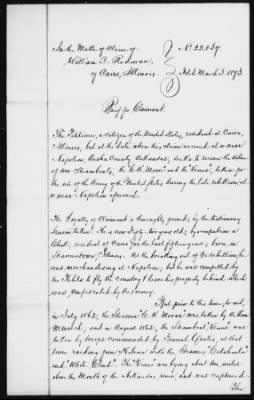 In the Matter of Claim of
William R. Redman,
of Cairo, Illinois.
No. 22,037
Filed March 3, 1873.
Brief for Claimant.
The Petitioner, a citizen of the United States, resident at Cairo,
Illinois, but at the date when this claim accrued at or near
Napoleon, Desha County, Arkansas; seeks to recover the value
of two Steamboats, the and the "Venus", taken for
the use of the Army of the United States during the late rebellion, at or
near Napoleon aforesaid.
The Loyalty of Claimant is thoroughly proved, by the testimony
He is now fifty-two years old; by occupation a
Clerk; resident of Cairo for the last fifteen years; born in
Shawneetown, Illinois. At the breaking out of the rebellion, he
was merchandizing at Napoleon; but he was compelled by
the Rebels to fly the country & leave his property behind, which
was confiscated by the enemy.
But prior to this time, to wit,
in July 1862, the Steamer was taken by the
and in August 1862, the Steamboat "Venus" was
taken by troops commanded by General at that
time raiding from Helena with the Steamers
and "White Cloud". The "Venus" was lying about two miles
above the Mouth of the Arkansas river, and was captured.
The